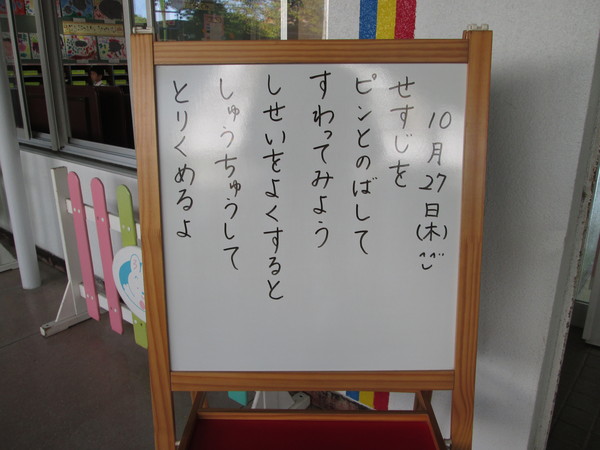 10月27日(木)
せすじを
ピンとのばして
すわってみよう
しせいをよくすると
しゅうちゅうして
とりくめるよ